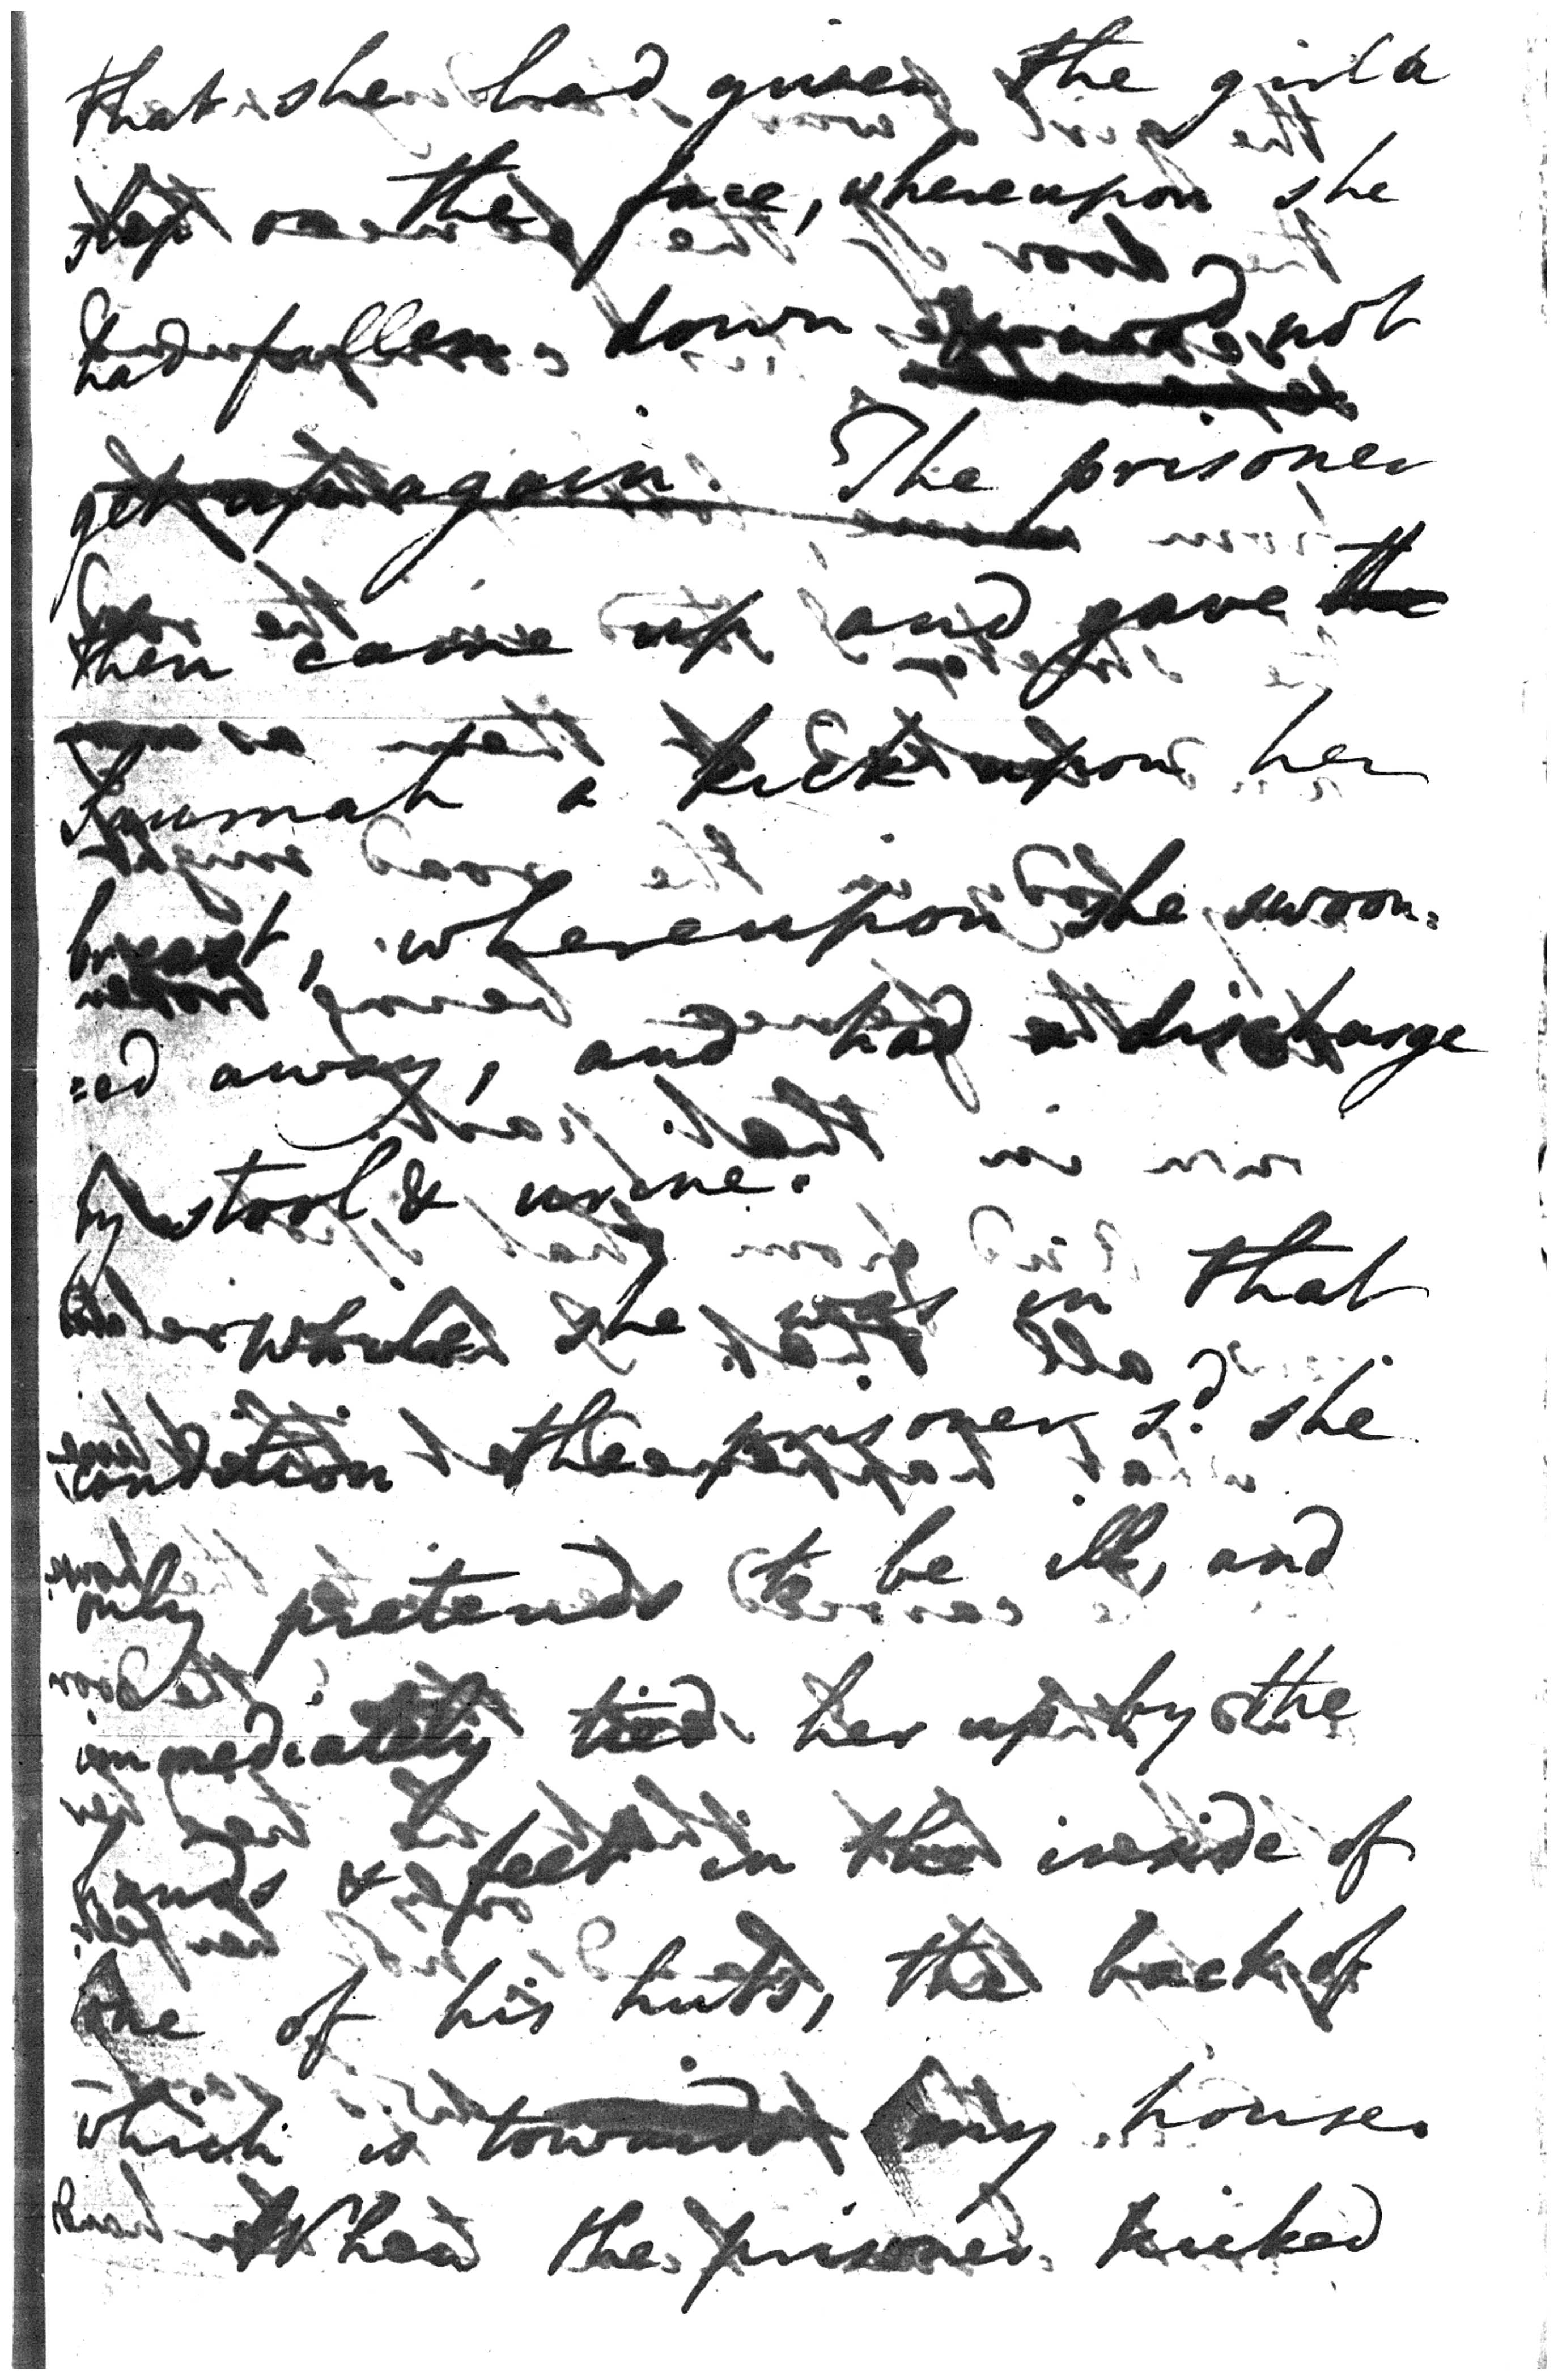 that she had given the girl a
slap on the face, whereupon she
had fallen down and could not
get up again. The prisoner
then came up and gave the
a kick upon her
breast, whereupon she swoon=
=ed away, and had a discharge
by stool & urine.
While she was in that
condition the prisoner sd. she
only pretends to be ill, and
immediately tied her up by the
hands & feet in the inside of
one of his huts, the back of
which is towards my house.
When the prisoner kicked